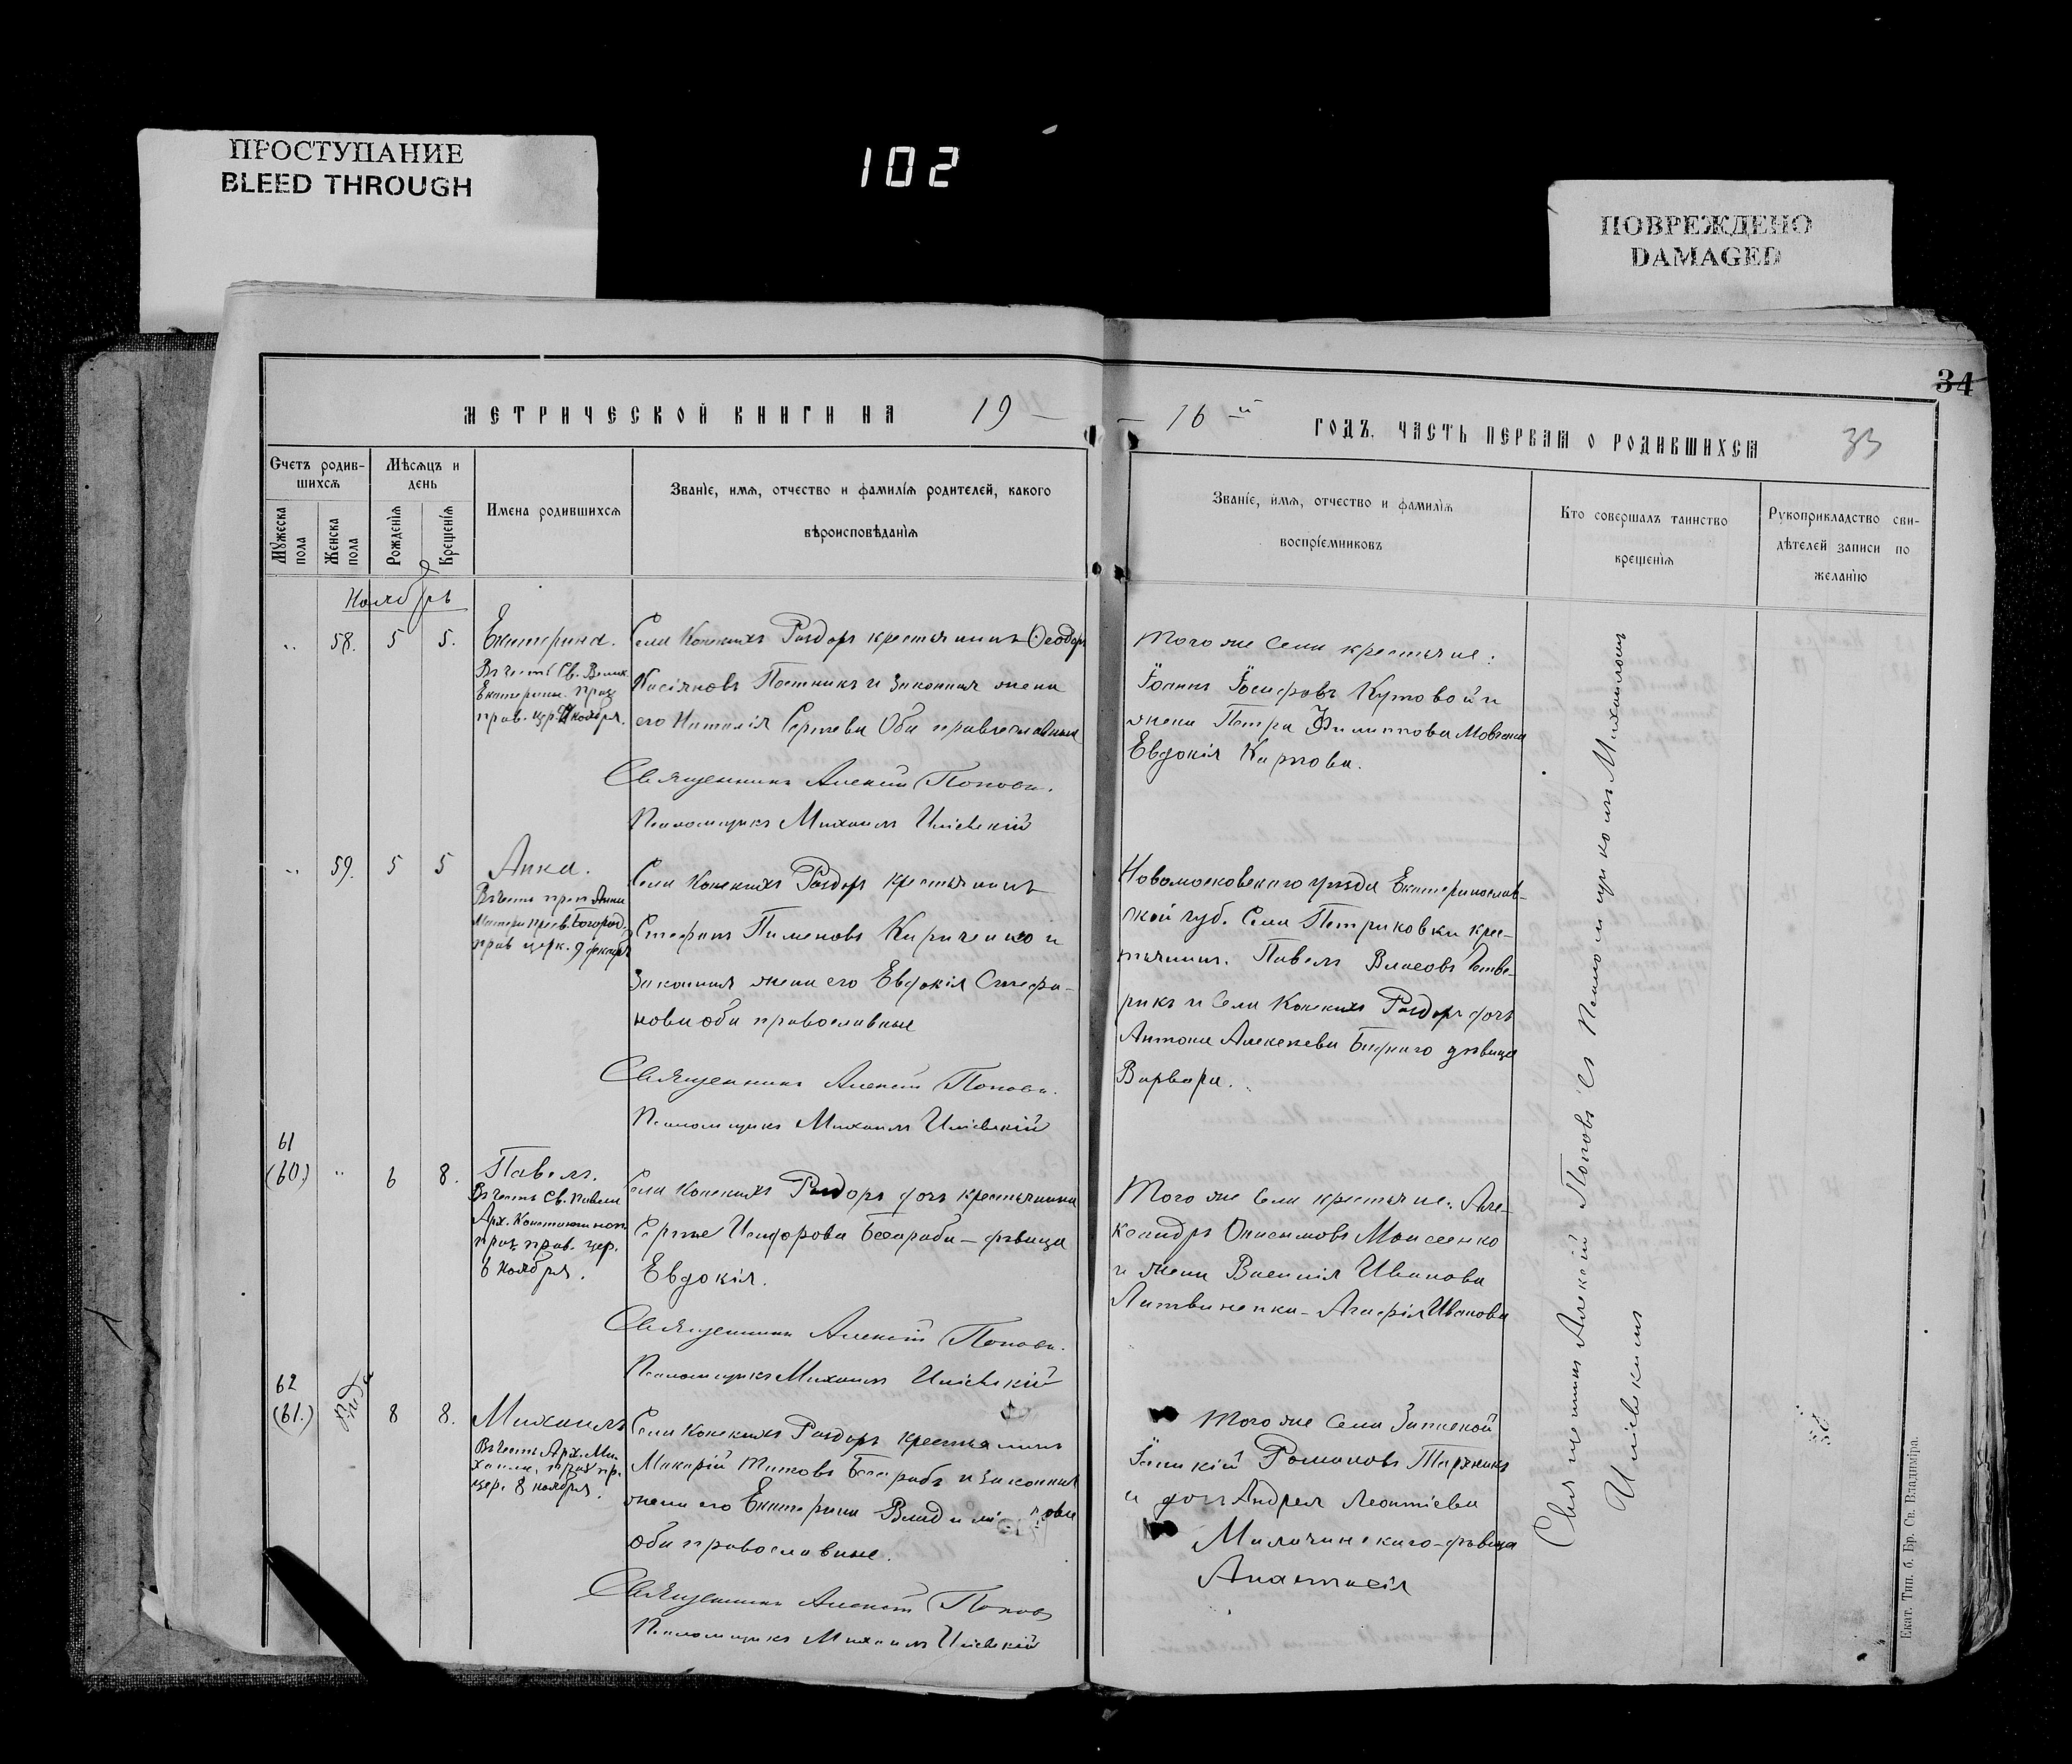 ПРОСТУПАНИЕ
BLEED THROUGH
102
ПОВРЕЖДЕНО
DAMAGED
34
МЕТРИЧЕСКОЙ КНИГИ НА 19 —
— 16 й ГОДЪ. ЧАСТЬ ПЕРВАЯ О РОДИВШИХСЯ
33
Счетъ родив-
шихся
Мужеска
пола
Женска
пола
Мѣсяцъ и
день
Рожденія
Крещенія
Имена родившихся
Званіе, имя, отчество и фамилія родителей, какого
вѣроисповѣданія
Званіе, имя, отчество и фамилія
воспріемниковъ
Кто совершалъ таинство
крещенія
Рукоприкладство сви-
дѣтелей записи по
желанію
Ноябрь
„ 58. 5 5.
Екатерина.
Въ честь Св. Велик.
Екатерины. праз
прав. цр. ноября.
Села Конскихъ Раздоръ крестьянинъ Ѳеодоръ
Касіяновъ Постникъ и законная жена
его Наталія Сергѣева Оба православные
Священникъ Алексій Поповъ.
Псаломщикъ Михаилъ
Того же села крестьяне:
Іоаннъ Іосифовъ Кутовой и
жена Петра Филиппова
Евдокія Карпова.
„ 59. 5 5
Анна.
Въ честь прав Анны
Матери пресв. Богород.
прав церк. 9 декабря
Села Конскихъ Раздоръ крестьянинъ
Стефанъ Пименовъ Кириченко и
законная жена его Евдокія Стефа-
нова оба православные
Священникъ Алексій Поповъ.
Псаломщикъ Михаилъ
Новомосковскаго уѣзда Екатеринослав-
ской губ. Села Петриковки крес-
тьянинъ. Павелъ Власовъ
и Села Конскихъ Раздоръ дочь
Антона Алексѣева Бѣднаго дѣвица
Варвара.
61
(60.) „ 6 8.
Павелъ.
Въ честь Св. Павла
Арх. Константиноп.
праз. прав. цер.
6 ноября.
Села Конскихъ Раздоръ дочь крестьянина
Сергѣя Исидорова Бесараба — дѣвица
Евдокія.
Священникъ Алексій Поповъ.
Псаломщикъ Михаилъ
Того же Села крестьяне: Але-
ксандръ Онисимовъ Моисеенко
и жена Василія Иванова
Литвиненка — Агафія Иванова
62
(61.) 8 8.
Михаилъ
Въ честь Арх. Ми-
хаила, праз пр.
цер. 8 ноября.
Села Конскихъ Раздоръ крестьянинъ
Макарій Титовъ Бесарабъ и законная
жена его Екатерина
оба православные.
Священникъ Алексій Поповъ
Псаломщикъ Михаилъ
Того же Села
Романовъ
и дочь Андрея Леонтіева
дѣвица
Анастасія
Священникъ Алексій Поповъ съ Псаломщикомъ Михаиломъ
Екат. Тип. б. Бр. Св. Владиміра.